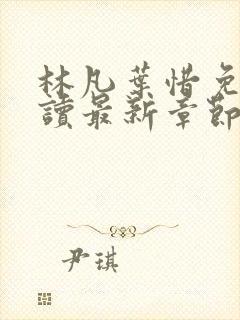 林凡葉惜免
讀最新章節
尹琪